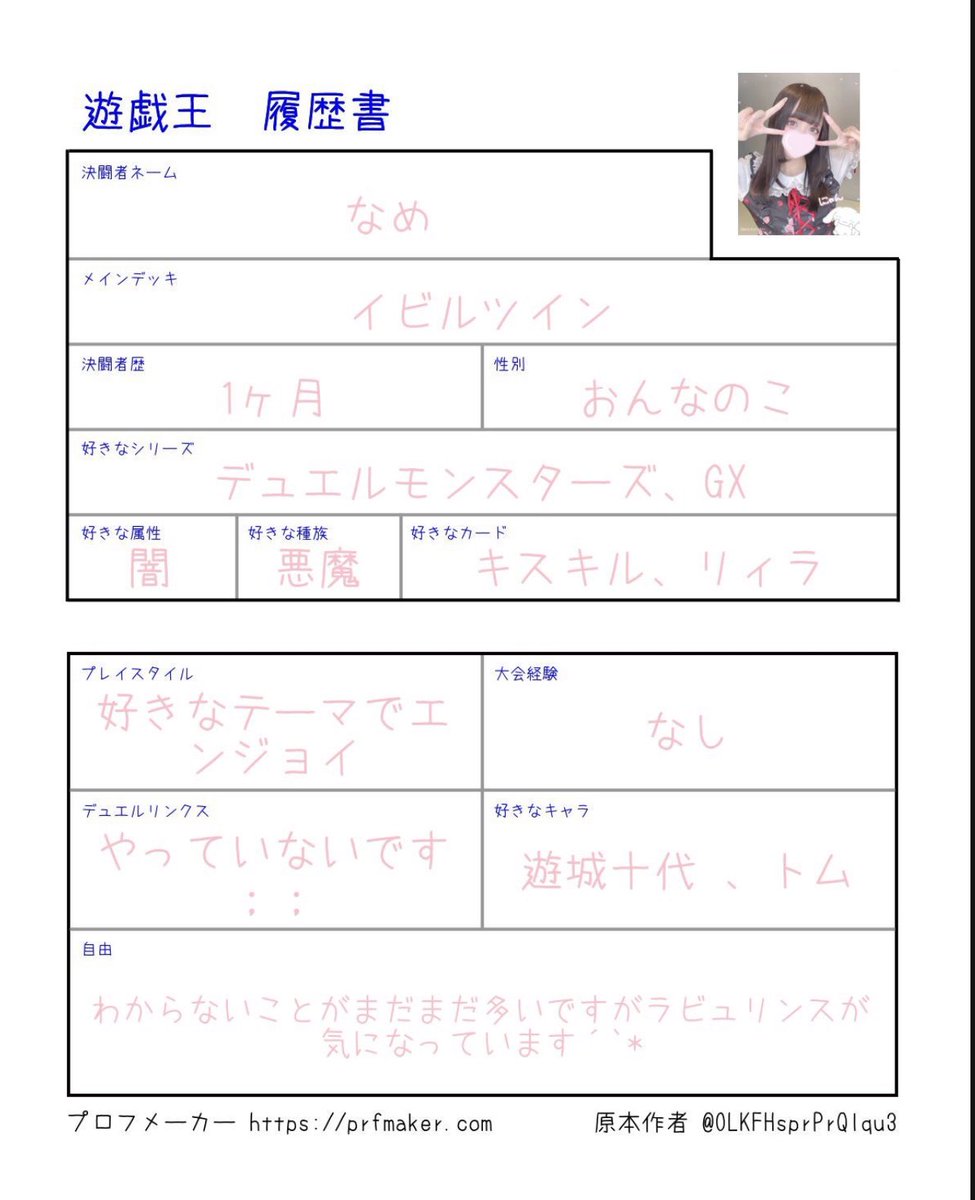 遊戯王　履歴書
にゃん
決闘者ネーム
なめ
メインデッキ
イビルツイン
決闘者歴
1ヶ月
性別
おんなのこ
好きなシリーズ
デュエルモンスターズ、GX
好きな属性
闇
好きな種族
悪魔
好きなカード
キスキル、リィラ
プレイスタイル
好きなテーマでエ
ンジョイ
大会経験
なし
デュエルリンクス
やっていないです
；；
好きなキャラ
遊城十代 、トム
自由
わからないことがまだまだ多いですがラビュリンスが
気になっています´`*
プロフメーカー https://prfmaker.com
原本作者 @OLKFHsprPrQlqu3